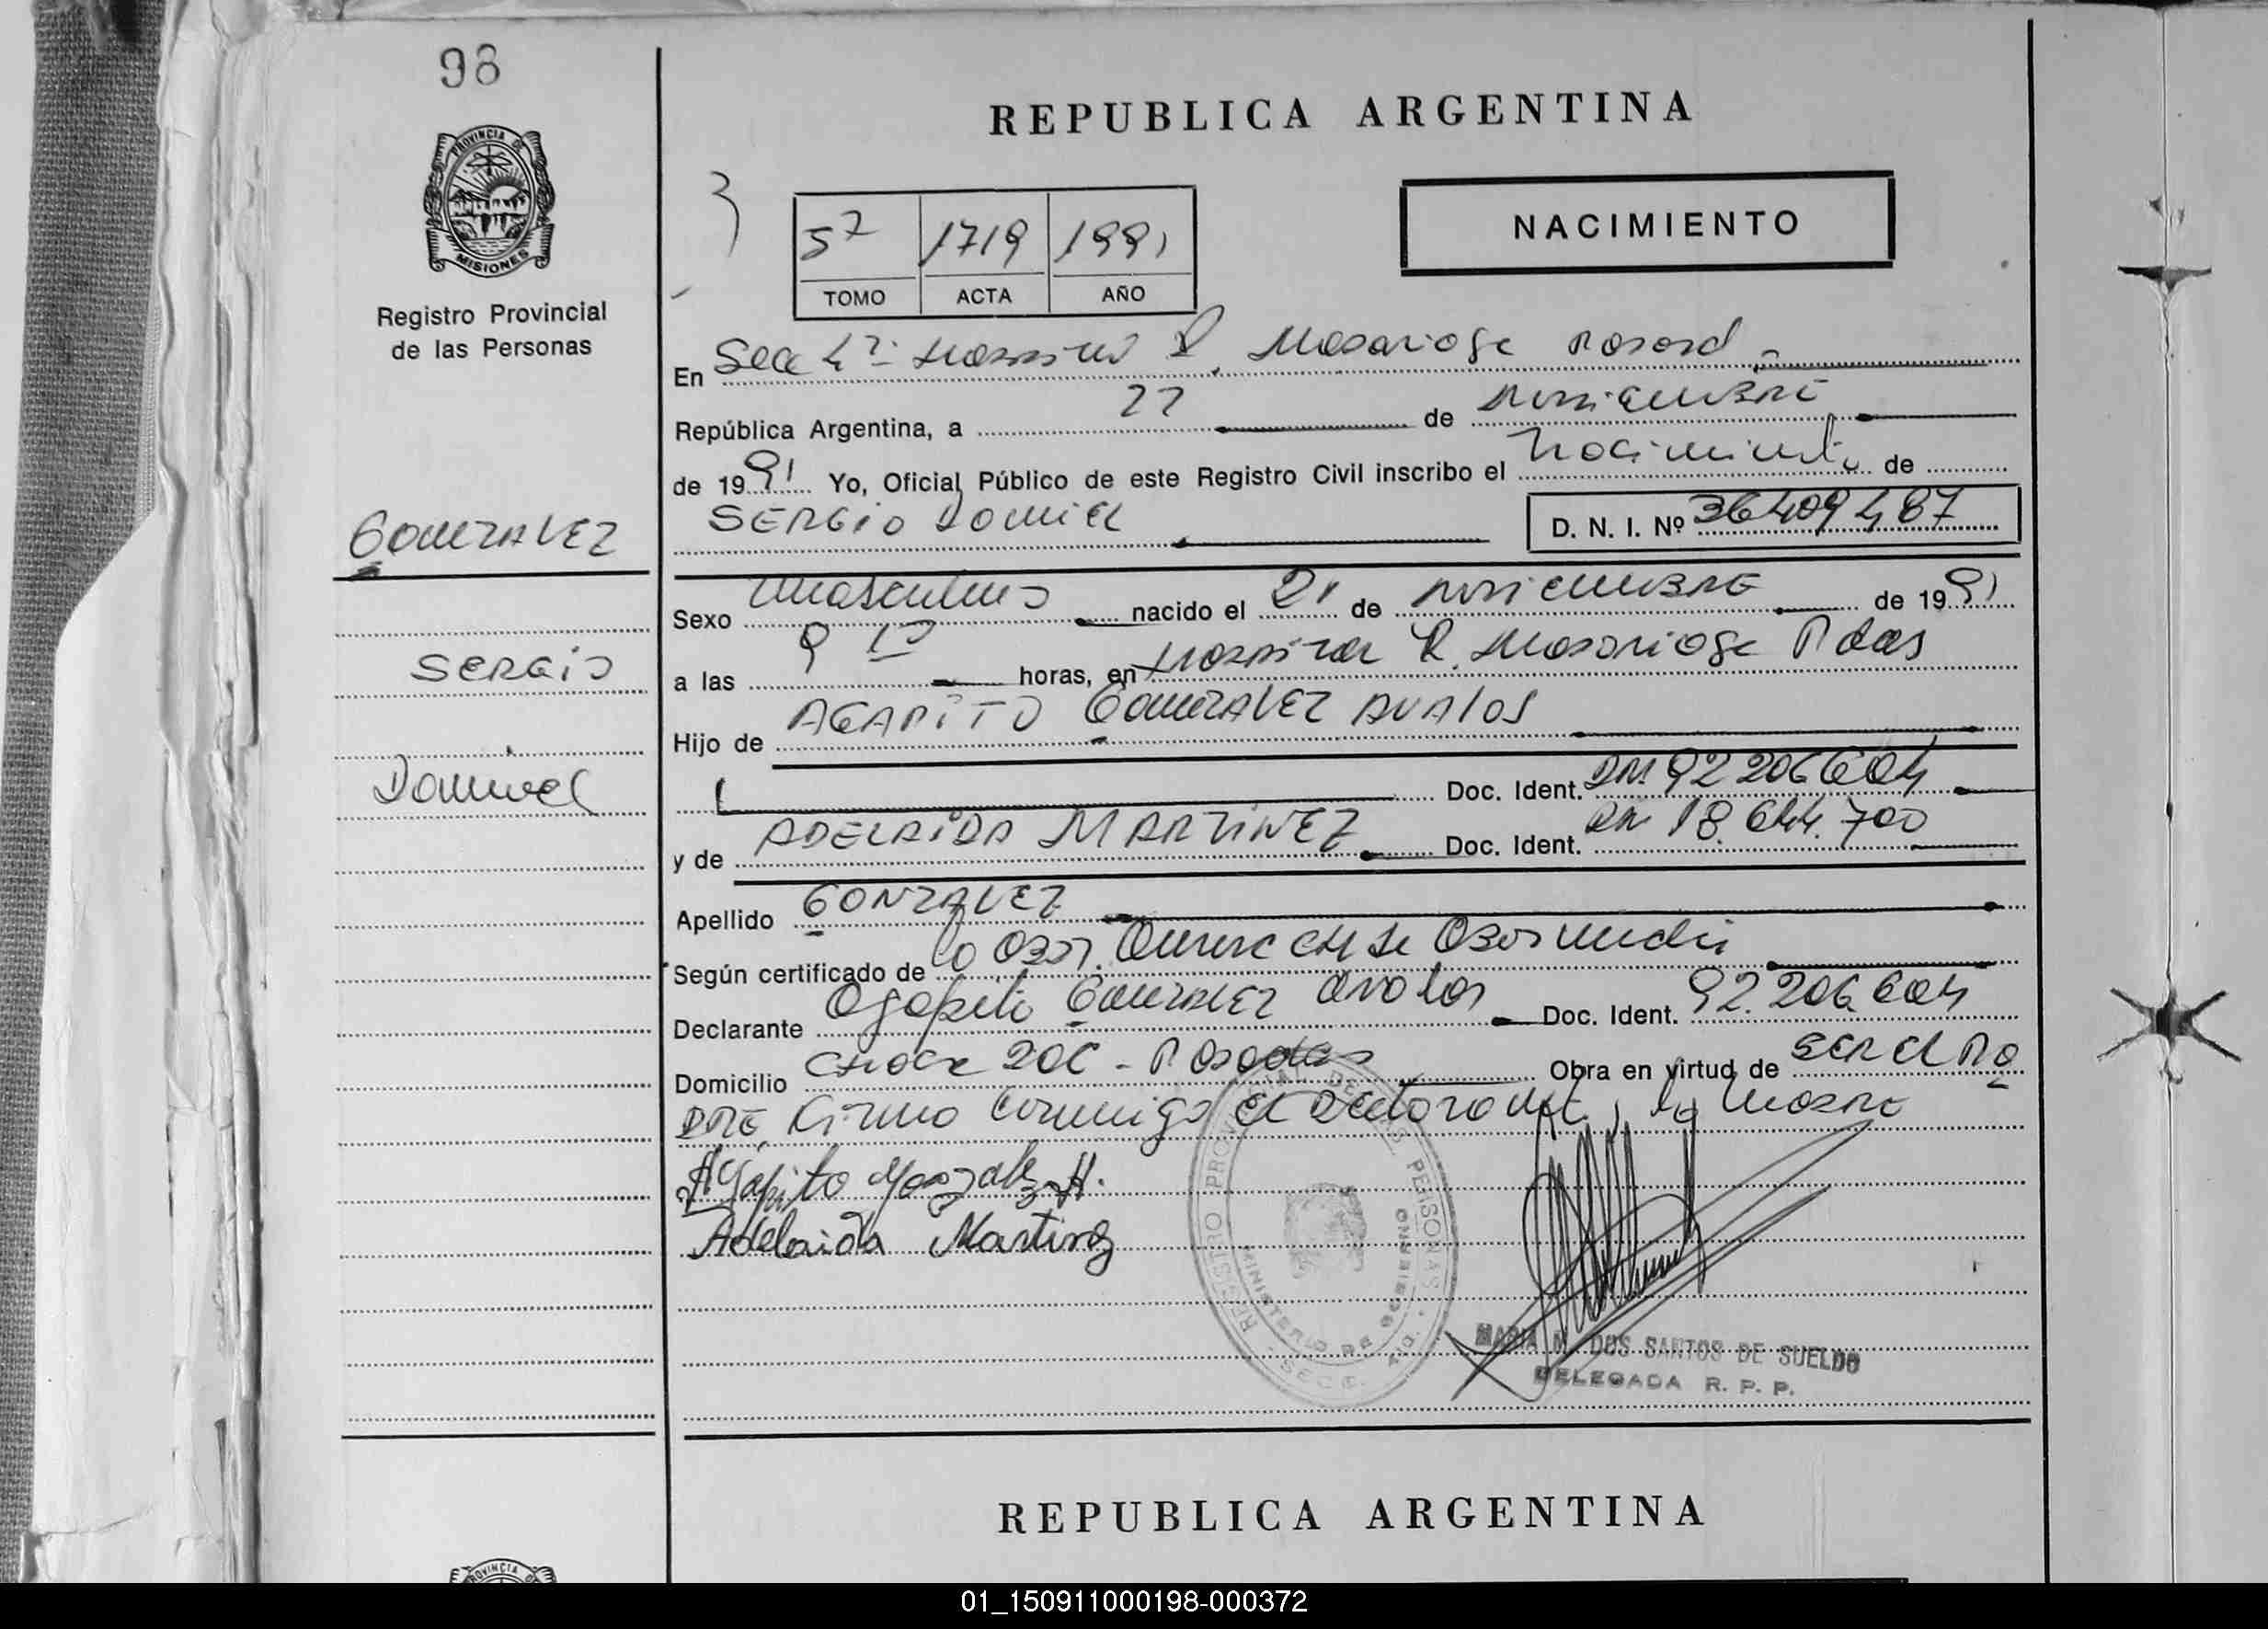 98
PROVINCIA DE
MISIONES
Registro Provincial
de las Personas
REPUBLICA ARGENTINA
3
57 1719 1991
TOMO ACTA AÑO
NACIMIENTO
En Sec 4ª Hospital R. Madariaga
República Argentina, a 22 de noviembre
de 1991 Yo, Oficial Público de este Registro Civil inscribo el Nacimiento de
GONZALEZ
SERGIO DANIEL
D. N. I. Nº 36409487
Sexo masculino nacido el 21 de noviembre de 1991
SERGIO
a las 9 10 horas, en Hospital R. Madariaga Pdas
Hijo de AGAPITO GONZALEZ AVALOS
Daniel
Doc. Ident. DNI 92 206604
y de ADELAIDA MARTINEZ Doc. Ident. DNI 18.644.700
Apellido GONZALEZ
Según certificado de la Obst.
Declarante Agapito GONZALEZ Avalos Doc. Ident. 92.206.604
Domicilio Chacra 206 - Posadas Obra en virtud de SER EL PA
DRE, Firma conmigo el declarante, la madre
Agapito Gonzalez A.
Adelaida Martinez
REGISTRO PROVINCIAL DE LAS PERSONAS
MINISTERIO DE GOBIERNO
MARIA N. DOS SANTOS DE SUELDO
DELEGADA R. P. P.
REPUBLICA ARGENTINA
01_150911000198-000372